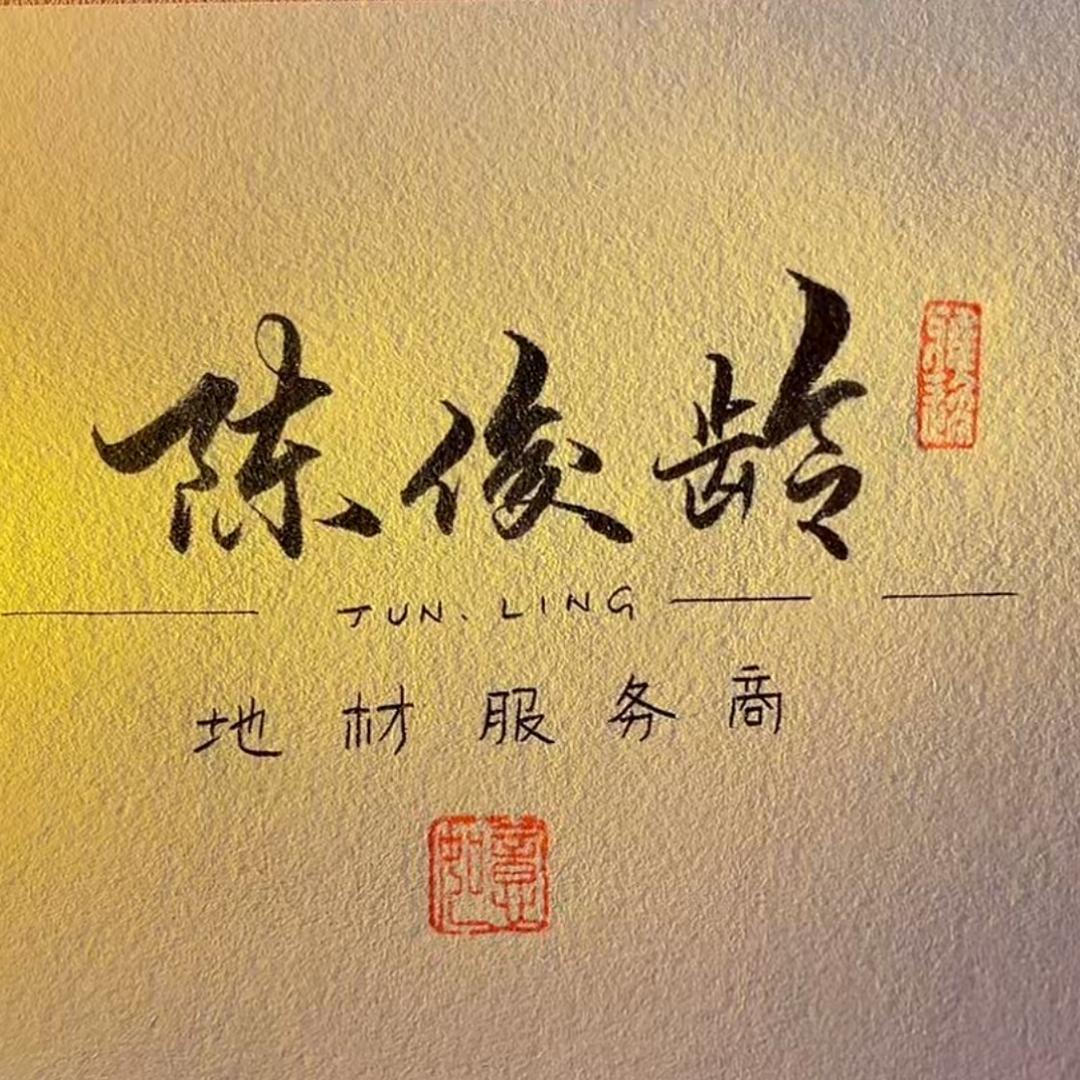 陈俊龄
JUN. LING
地材服务商